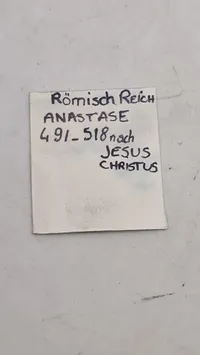 Römisch Reich
ANASTASE
491-518 nach
JESUS
CHRISTUS